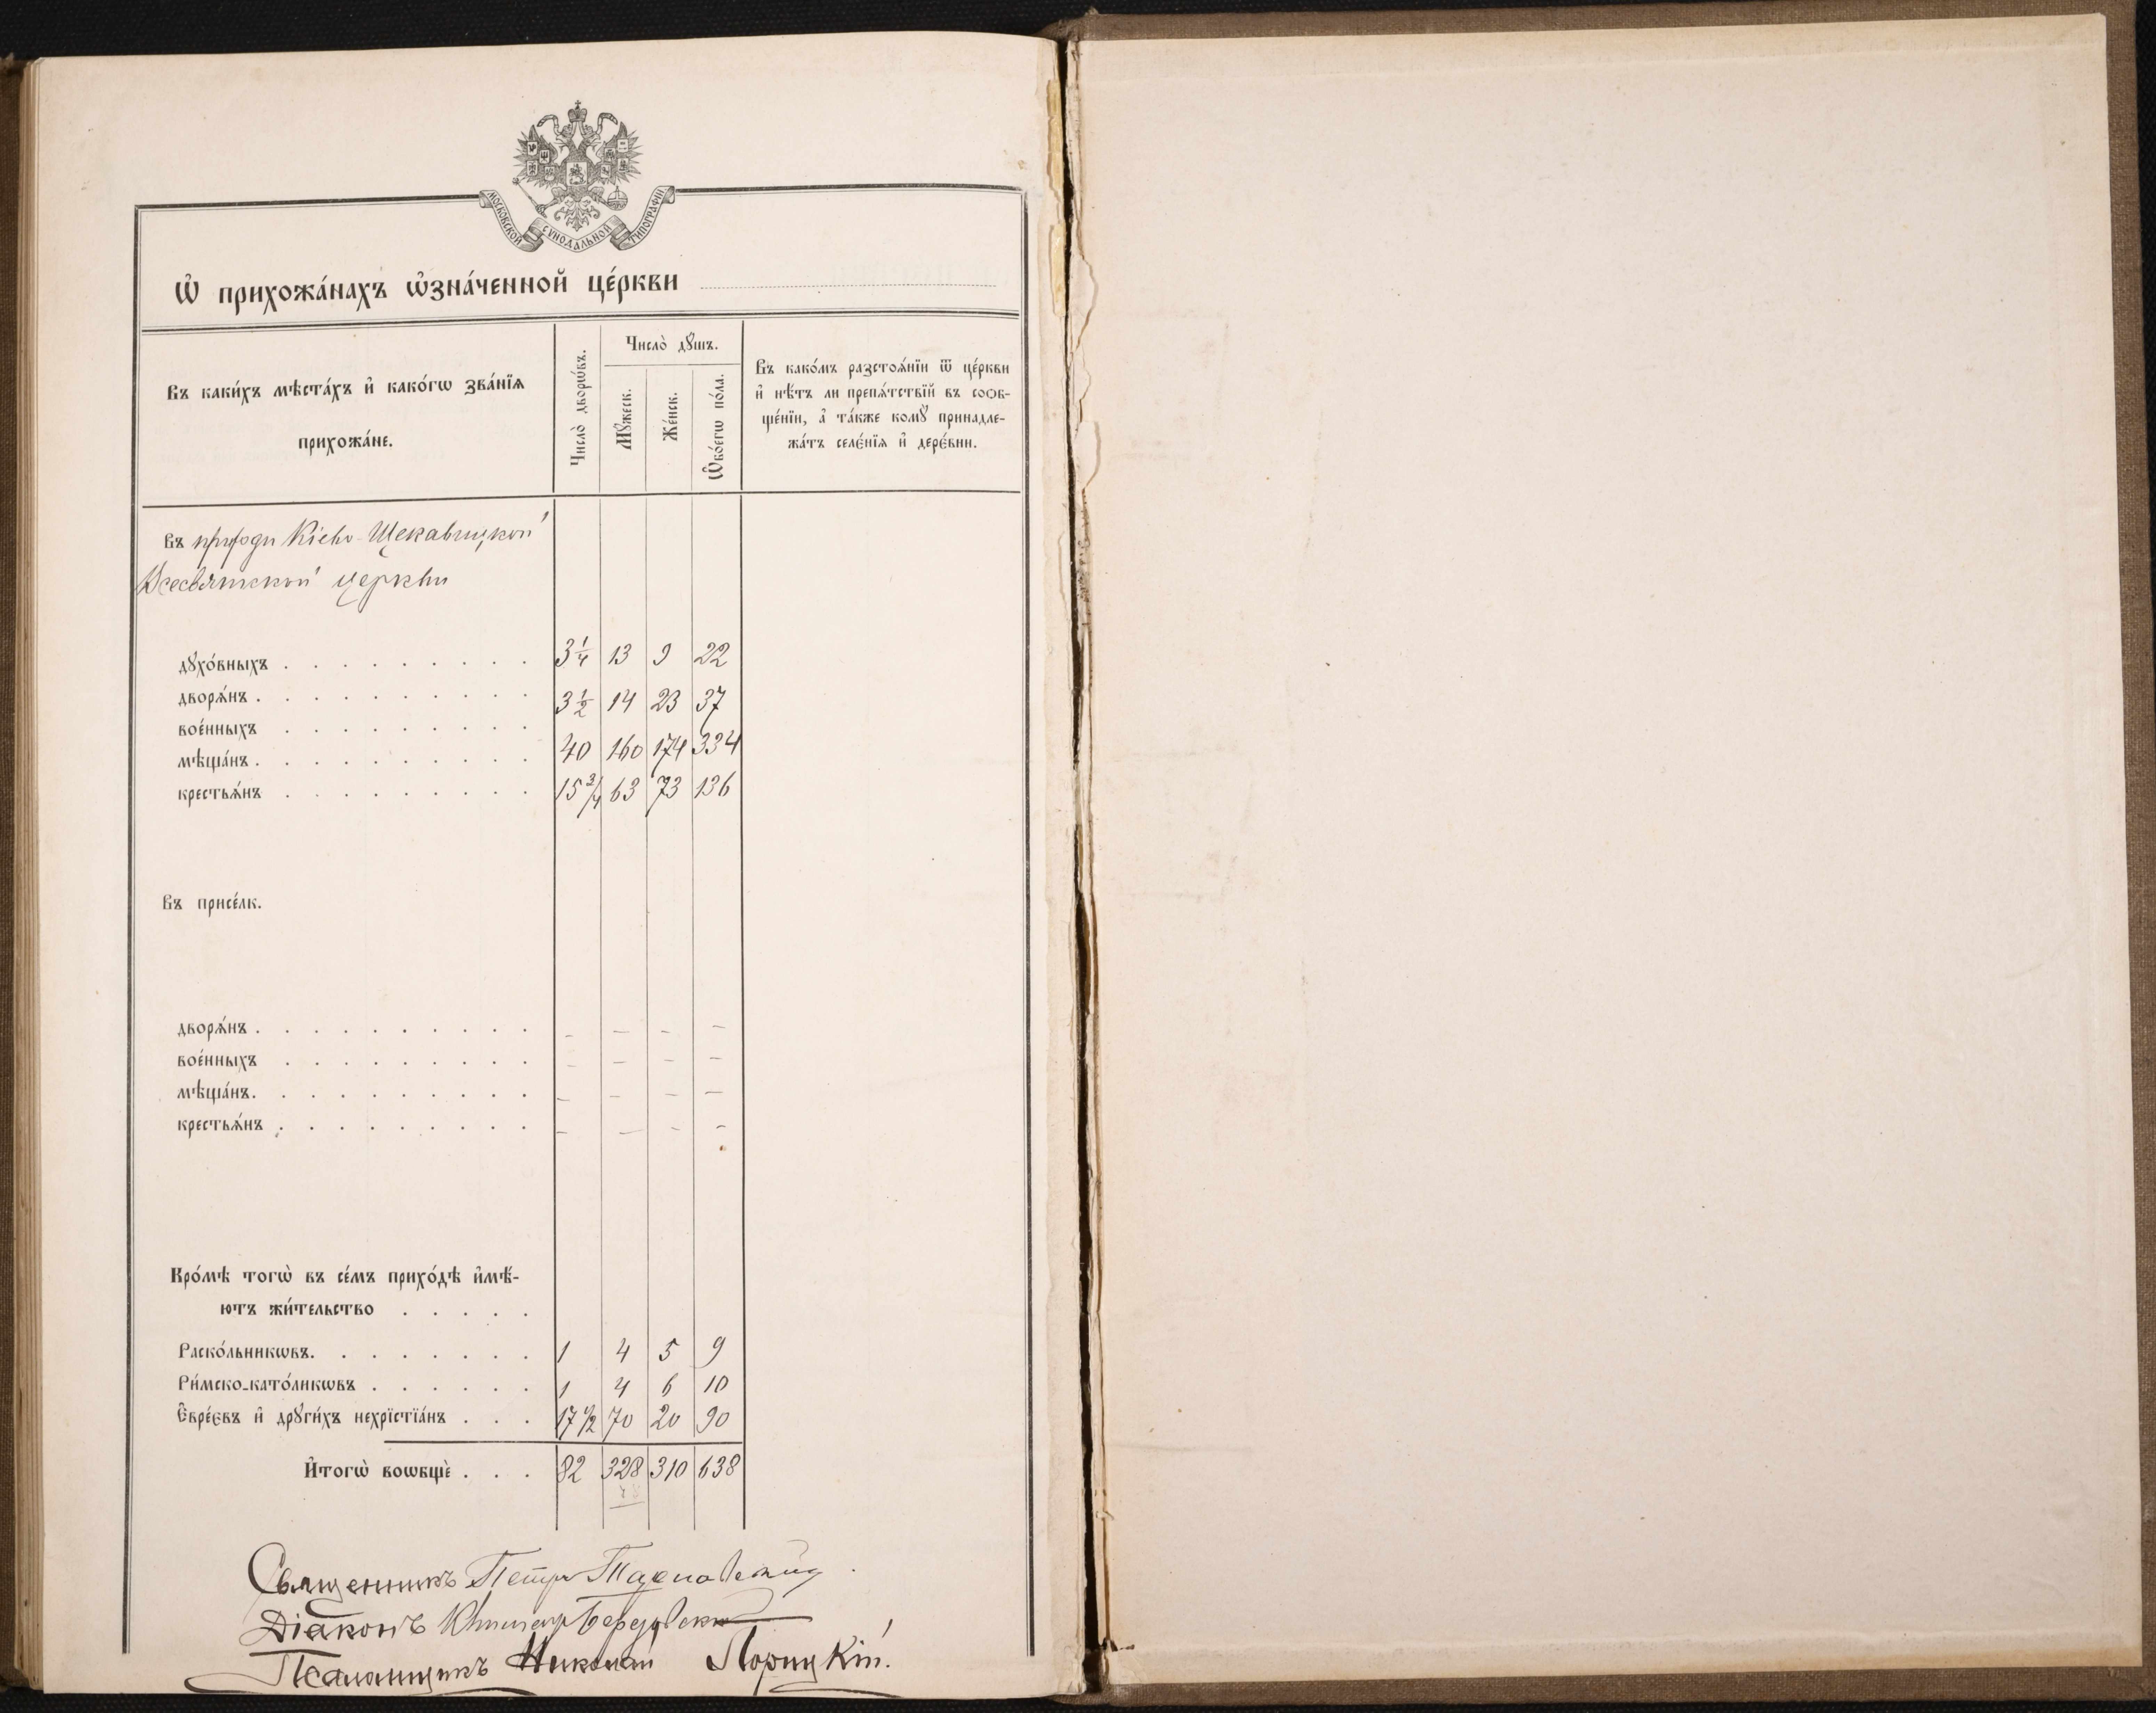 МОСКОВСКОЙ СѴНОДАЛЬНОЙ ТИПОГРАФІИ
Ѡ҆ прихожа́нахъ ѡ҆зна́ченной це́ркви
Въ каки́хъ мѣста́хъ и҆ како́гѡ зва́нїѧ
прихожа́не.
Число̀ дворѡ́въ.
Число̀ дꙋ́шъ.
Мꙋ́жеск.
Же́нск.
Ѻ҆бо́егѡ по́ла.
Въ како́мъ разстоѧ́нїи ѿ це́ркви
и҆ нѣ́тъ ли препѧ́тствїй въ сооб-
ще́нїи, а҆ та́кже комꙋ̀ принадле-
жа́тъ селе́нїѧ и҆ дере́вни.
Въ приходи Кіево-Щекавицкой
Всесвятской церкви
дꙋхо́вныхъ 3 1/4 13 9 22
дворѧ́нъ 3 1/2 14 23 37
вое́нныхъ
мѣща́нъ 40 160 174 334
крестьѧ́нъ 15 3/4 63 73 136
Въ присе́лк.
дворѧ́нъ - - - -
вое́нныхъ - - - -
мѣща́нъ - - - -
крестьѧ́нъ - - - -
Кро́мѣ тогѡ̀ въ се́мъ прихо́дѣ и҆мѣ́-
ютъ жи́тельство
Раско́льникѡвъ 1 4 5 9
Ри́мско-като́ликѡвъ 1 4 6 10
Є҆вре́євъ и҆ дрꙋги́хъ нехрїстїа́нъ 17 1/2 70 20 90
И҆тогѡ̀ воѡбщѐ 82 328 310 638
Священникъ Петръ
Діаконъ
Псаломщикъ Николай Порицкій.